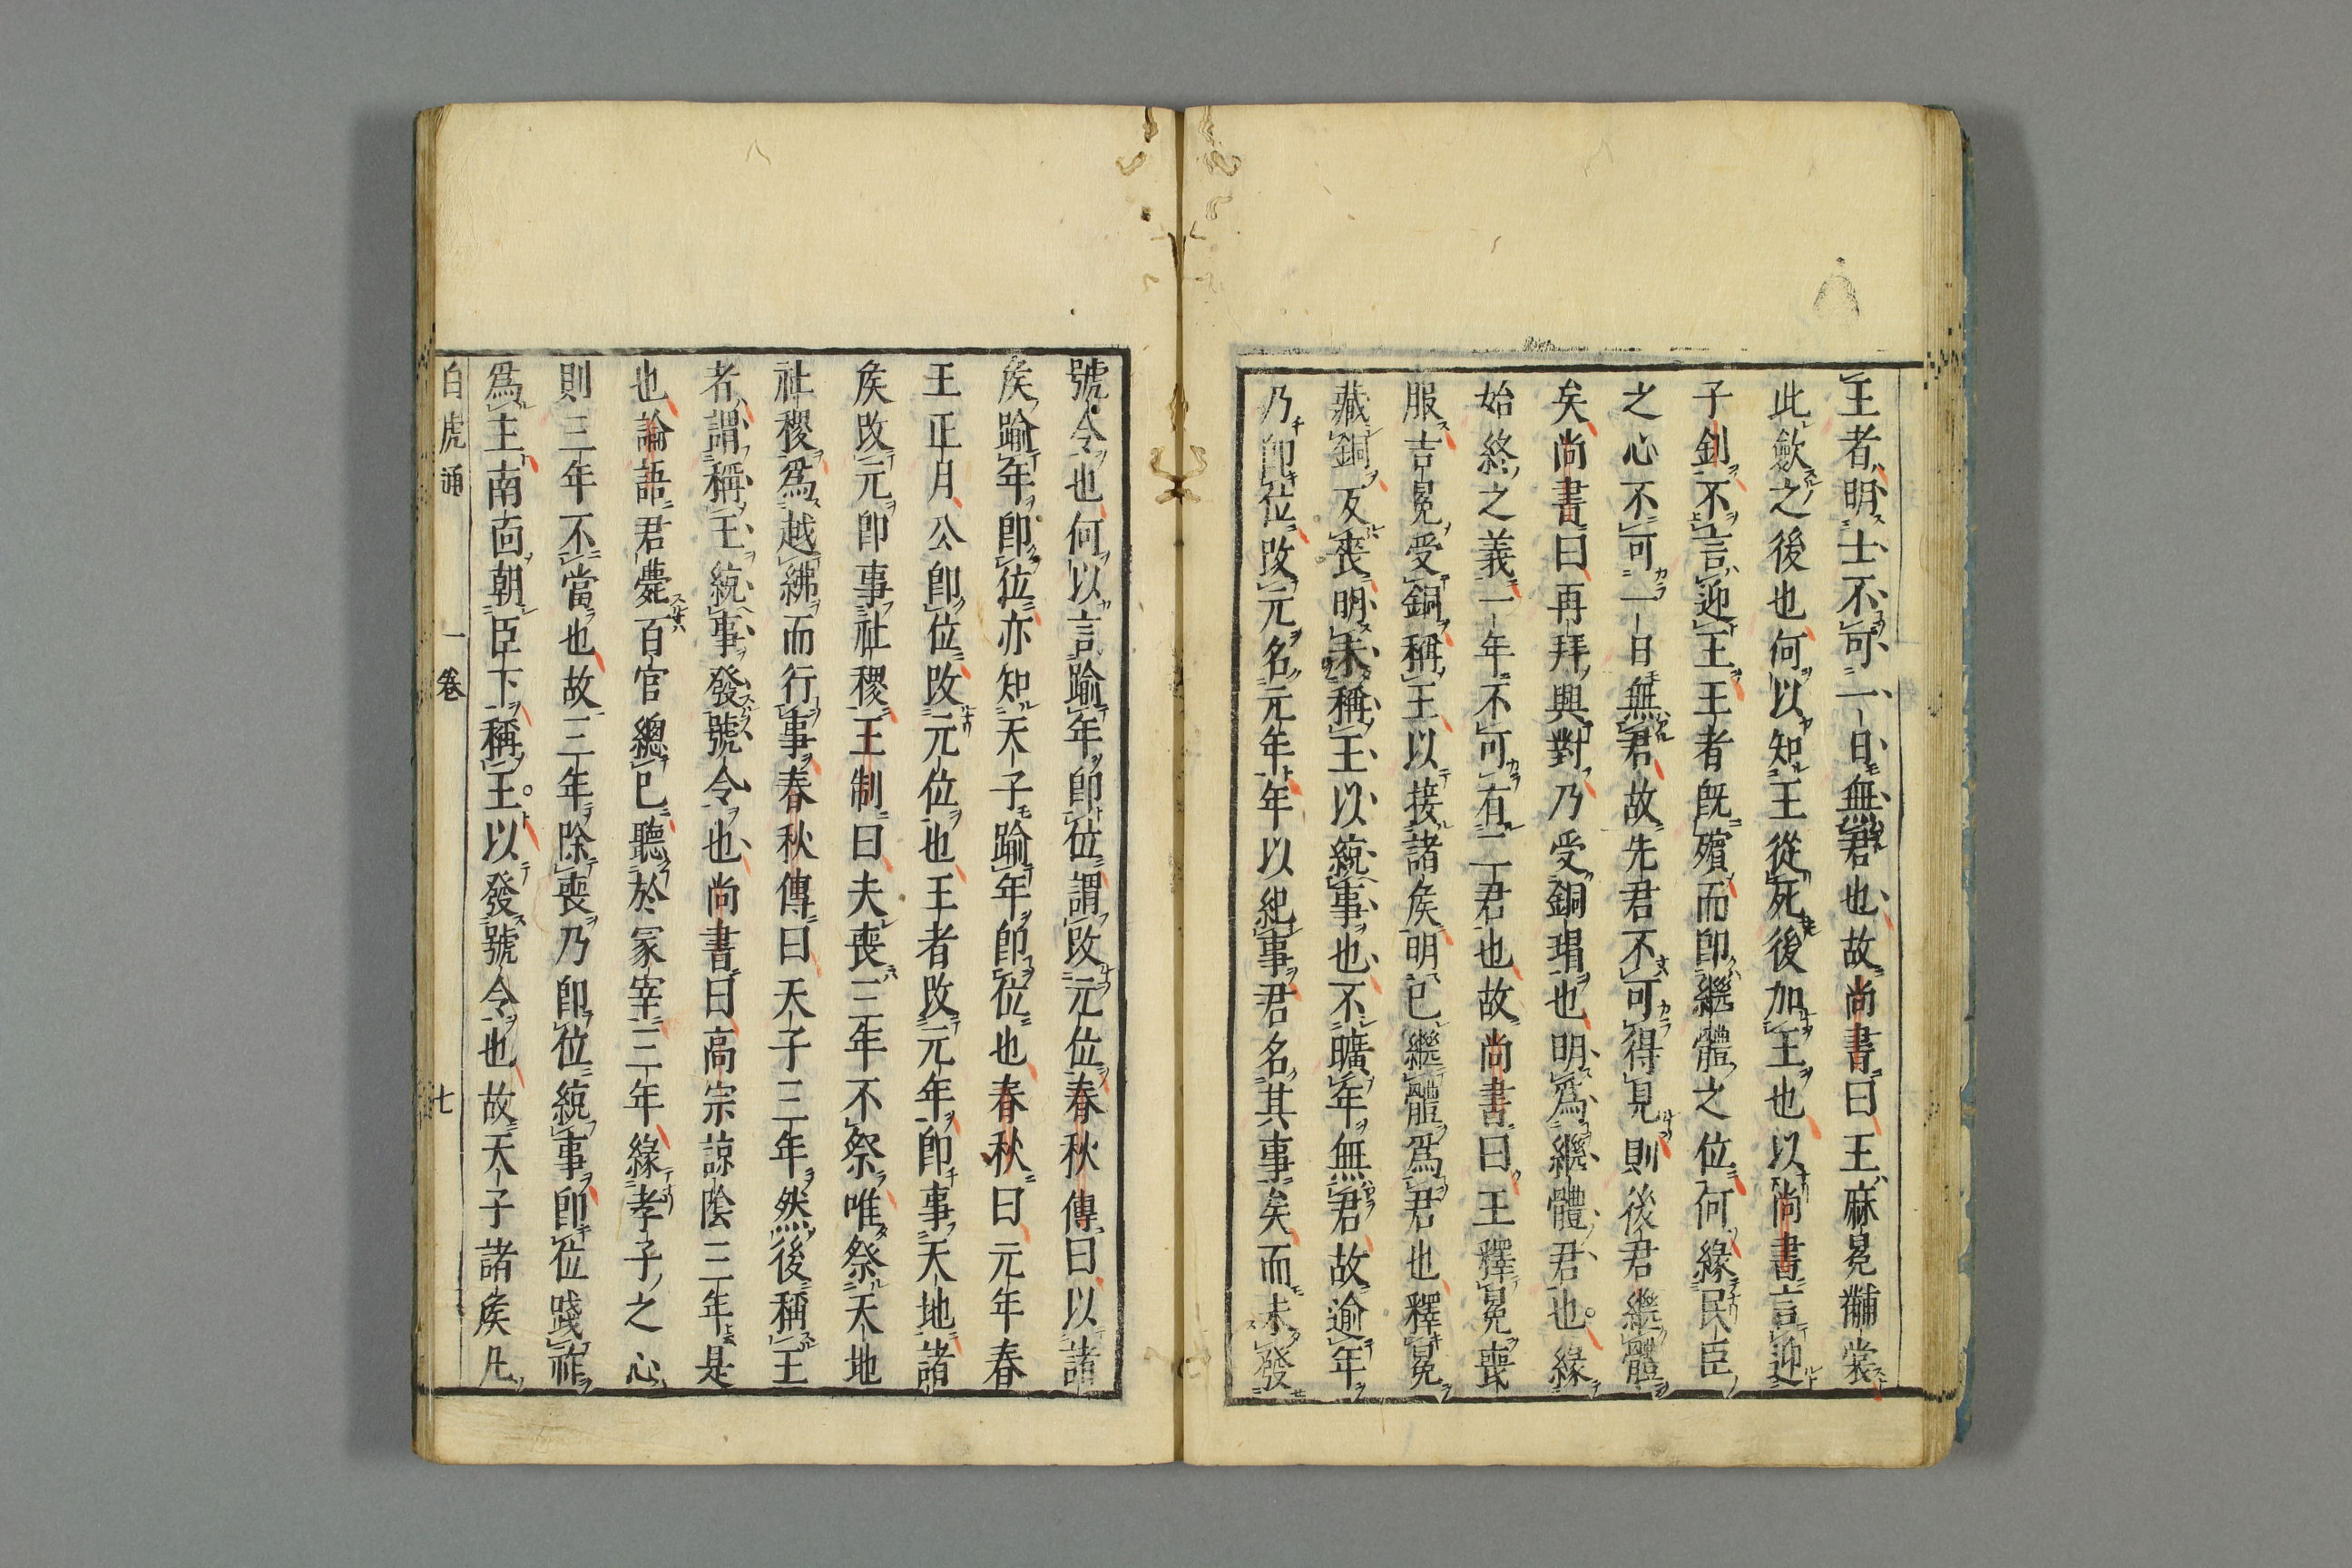 王者明士不可一日無君也故尚書曰王麻冕黼裳
此斂之後也何以知王從死後加王也以尚書言迎
子釗不言迎王王者旣殯而卽繼體之位何緣民臣
之心不可一日無君故先君不可得見則後君繼體
矣尚書曰再拜興對乃受銅瑁也明爲繼體君也緣
始終之義一年不可有二君也故尚書曰王釋冕喪
服吉冕受銅稱王以接諸矦明已繼體爲君也釋冕
藏銅反喪明未稱王以統事也不曠年無君故逾年
乃卽位改元名元年年以紀事君名其事矣而未發
號令也何以言踰年卽位謂改元位春秋傳曰以諸
矦踰年卽位亦知天子踰年卽位也春秋曰元年春
王正月公卽位改元位也王者改元年卽事天地諸
矦改元卽事社稷王制曰夫喪三年不祭唯祭天地
社稷爲越紼而行事春秋傳曰天子三年然後稱王
者謂稱王統事發號令也尚書曰高宗諒陰三年是
也論語君薨百官總已聽於冢宰三年緣孝子之心
則三年不當也故三年除喪乃卽位統事卽位踐祚
爲主南面朝臣下稱王以發號令也故天子諸矦凡
白虎通 一卷 七